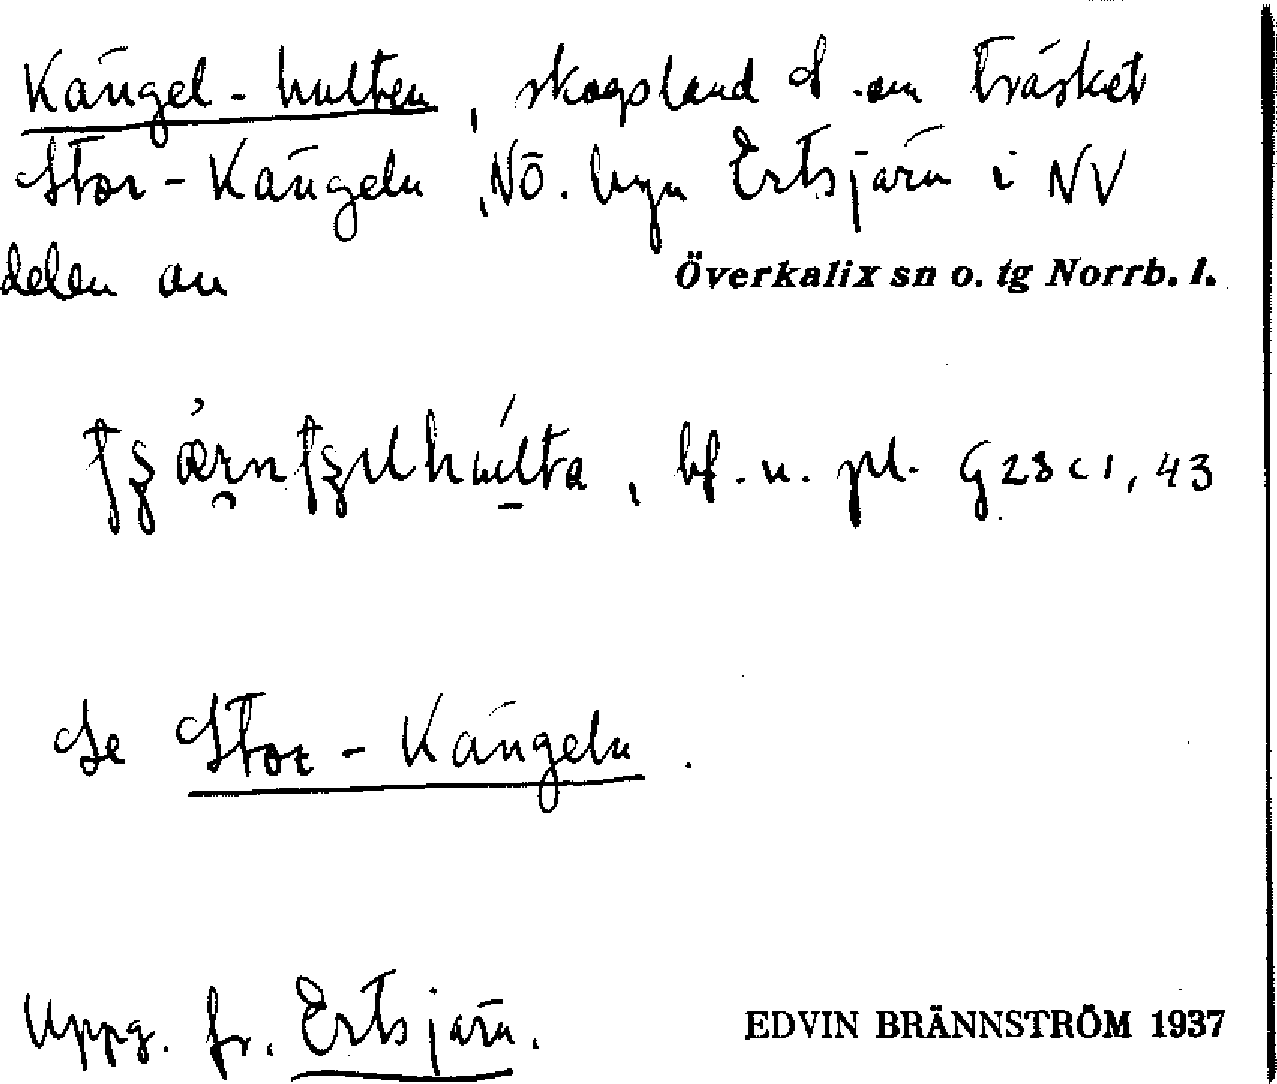 Kängel-hulten, skogsland S. om träsket
Stor-Kängeln, NÖ. byn Ertsjärn i NV
delen av Överkalix sn o. tg Norrb. l.
bf. n. pl. G23c1, 43
Se Stor-Kängeln.
Uppg. fr. Ertsjärn.
EDVIN BRÄNNSTRÖM 1937